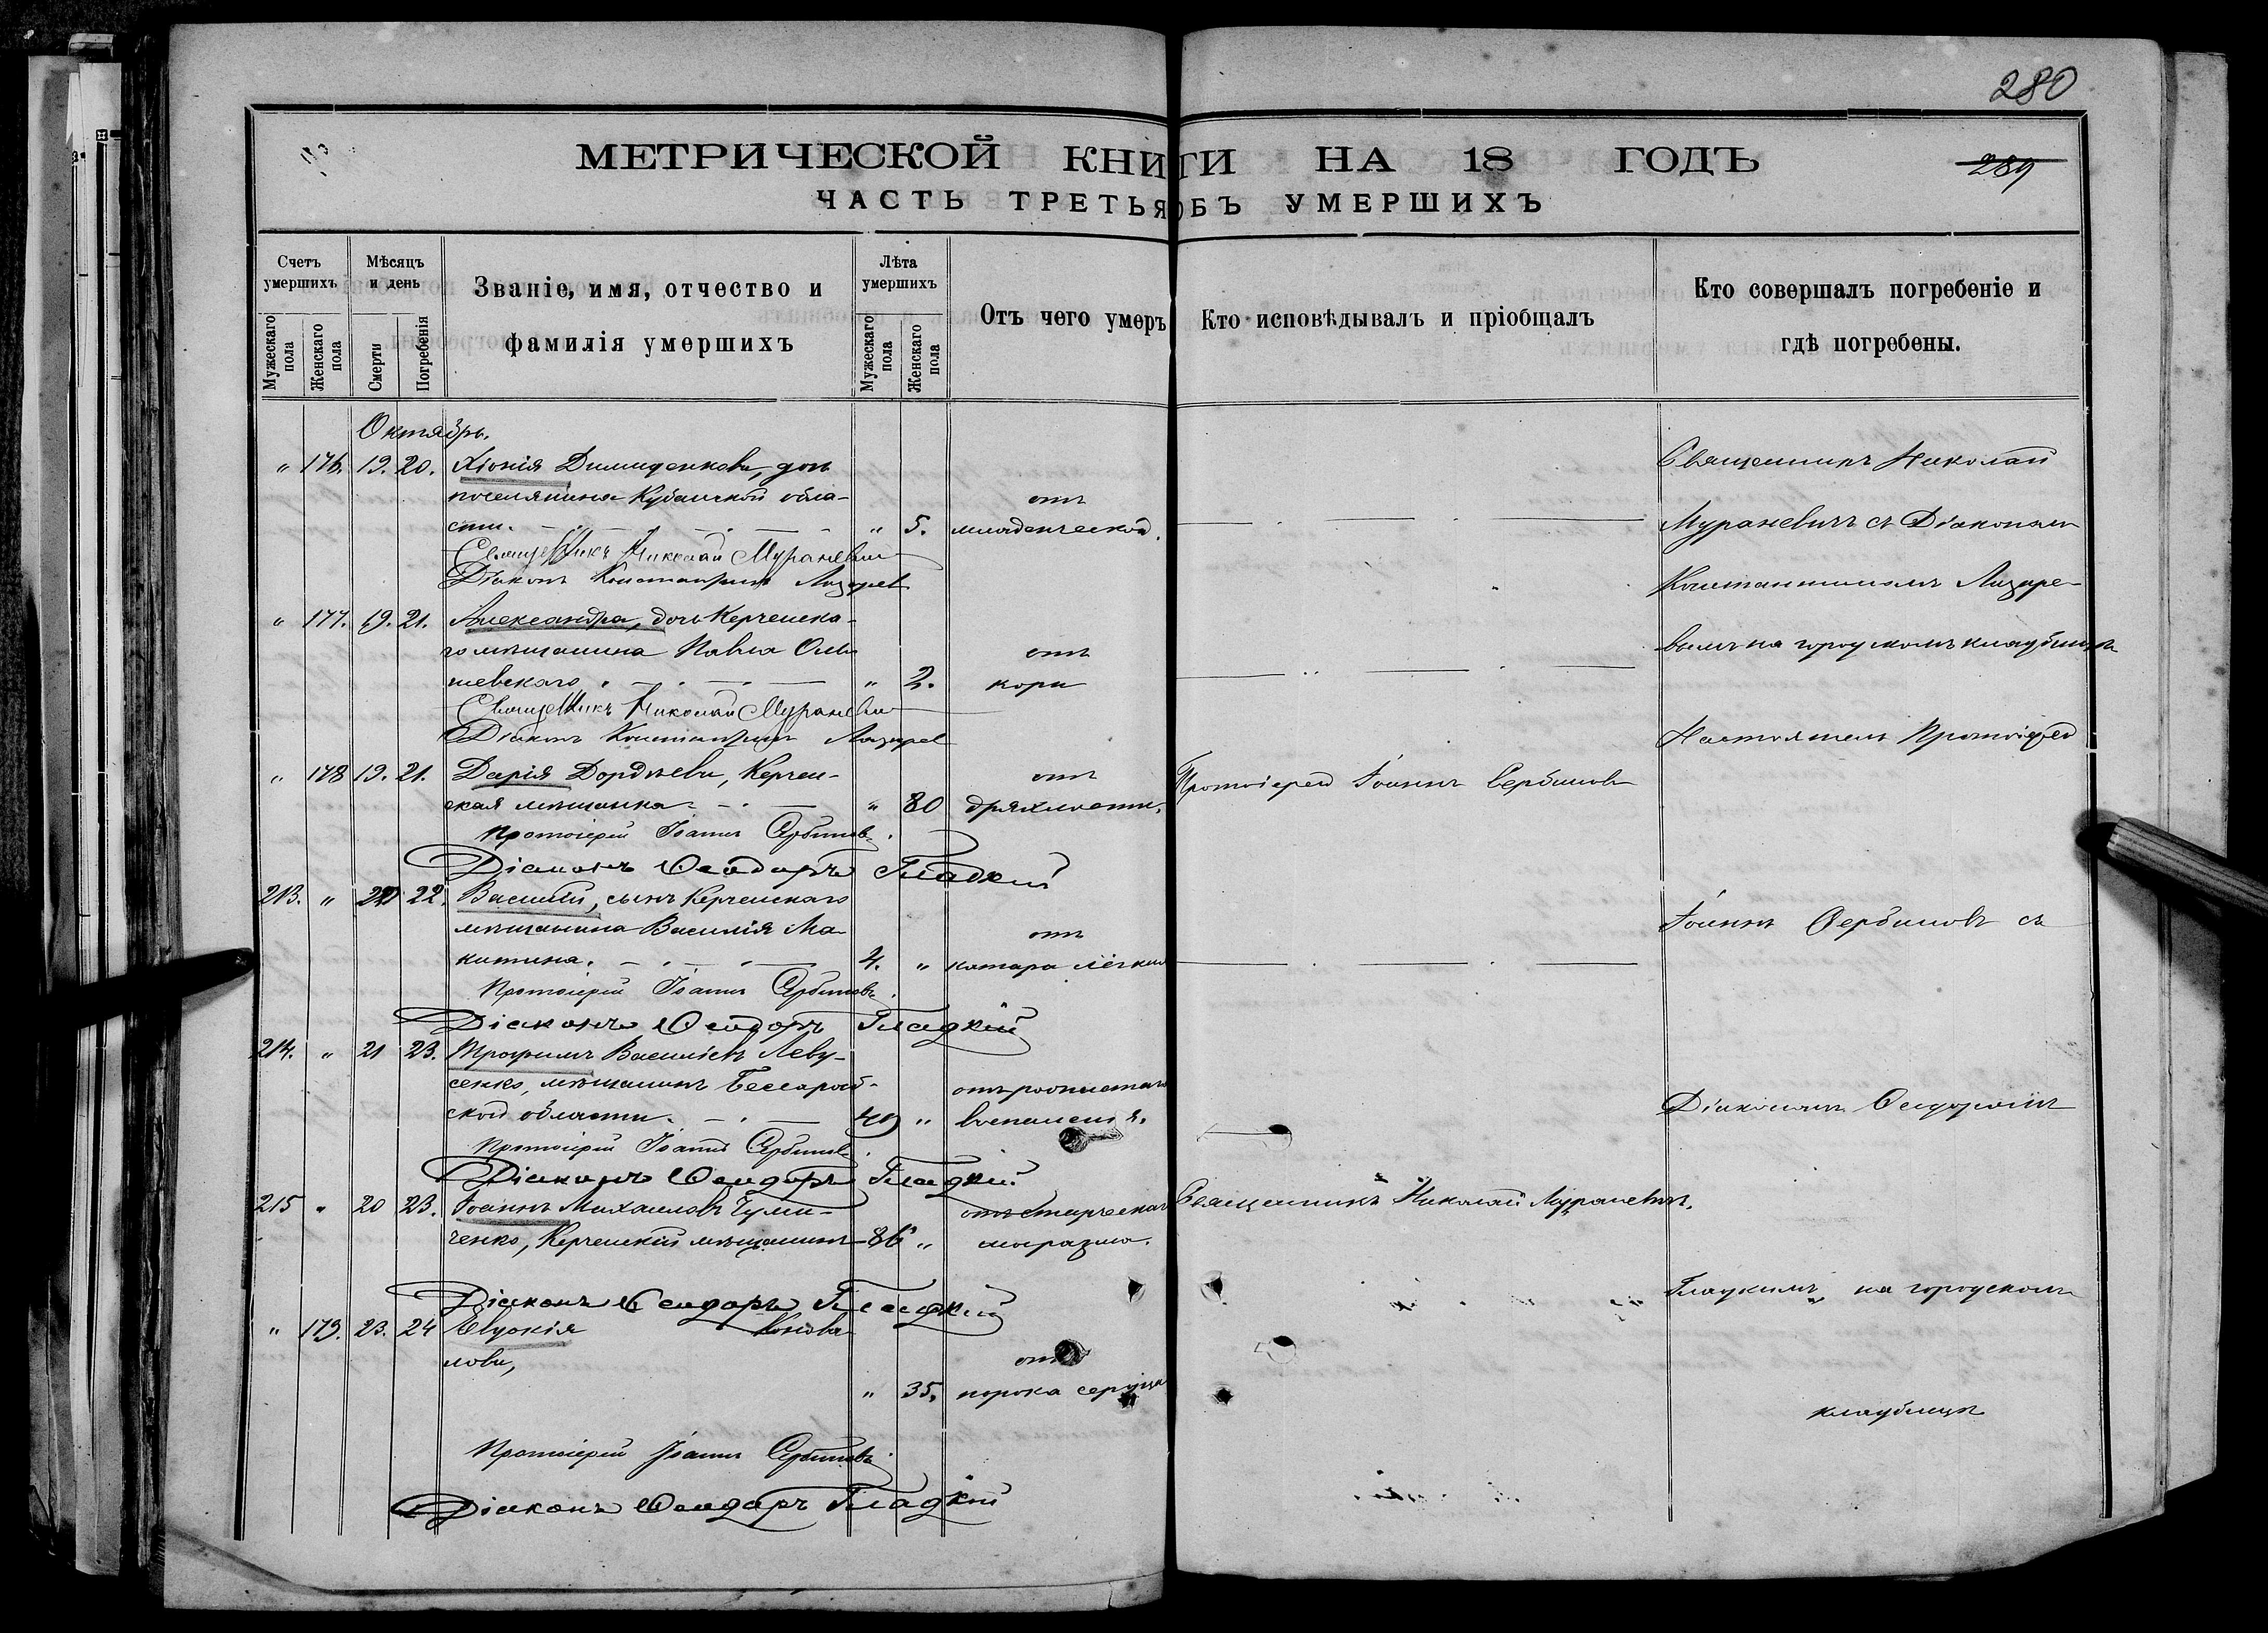 280
МЕТРИЧЕСКОЙ КНИГИ НА 18 ГОДЪ
289
ЧАСТЬ ТРЕТЬЯ ОБЪ УМЕРШИХЪ
Счетъ умершихъ
Мужескаго пола
Женскаго пола
Мѣсяцъ и день
Смерти
Погребенія
Званіе, имя, отчество и
фамилія умершихъ
Лѣта умершихъ
Мужескаго пола
Женскаго пола
Отъ чего умеръ
Кто исповѣдывалъ и пріобщалъ
Кто совершалъ погребеніе и
гдѣ погребены.
Октябрь.
" 176. 19. 20. Хіонія
поселянина Кубанской обла-
сти. " 5. отъ
младенческой.
Священникъ Николай Мураневич
Діаконъ Константинъ Лазарев
" 177. 19. 21. Александра, дочь Керченска-
го мѣщанина Павла
шевскаго. " 2. отъ
кори
Священникъ Николай Мураневич
Діаконъ Константинъ Лазарев
" 178 19. 21. Дарія Дордѣева, Керчен-
ская мѣщанка " 80 отъ
дряхлости.
Протоіерей Іоаннъ Сербиновъ
Діаконъ Ѳеодоръ Гладкій
213. " 20 22. Василій, сынъ Керченскаго
мѣщанина Василія Ма-
китина. 4. " отъ
катара лёгкихъ
Протоіерей Іоаннъ Сербиновъ
Діаконъ Ѳеодоръ Гладкій
214. " 21 23. Трофимъ Васильевъ Леву-
сенко, мѣщанинъ Бессараб-
ской области. 49 "
воспаленія.
Протоіерей Іоаннъ Сербиновъ
Діаконъ Ѳеодоръ Гладкій
215 " 20 23. Іоаннъ Михаиловъ
ченко, Керченскій мѣщанинъ 86 " отъ старческаго
маразма.
Діаконъ Ѳеодоръ Гладкій
" 179. 23. 24 Евдокія Конова
лова, " 35. отъ
порока сердца
Протоіерей Іоаннъ Сербиновъ
Діаконъ Ѳеодоръ Гладкій
Протоіерей Іоаннъ Сербиновъ
Священникъ Николай Мураневичъ.
Священникъ Николай
Мураневичъ съ Діакономъ
Константиномъ Лазаре-
вымъ на городскомъ кладбищѣ
Настоятель Протоіерей
Іоаннъ Сербиновъ съ
Діакономъ Ѳеодоромъ
Гладкимъ на городскомъ
кладбищѣ